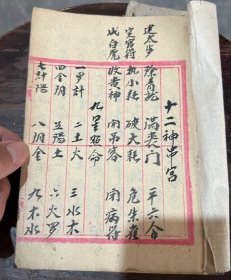 十二神串宮
建太岁 除青龍 满丧门 平六合
定官符 执小耗 破大耗 危朱雀
成白虎 收贵神 開吊客 閉病符
九星照命
一罗計 二土火 三水木
四金阴 五陽土 六火罗
七計陽 八阴金 九木水